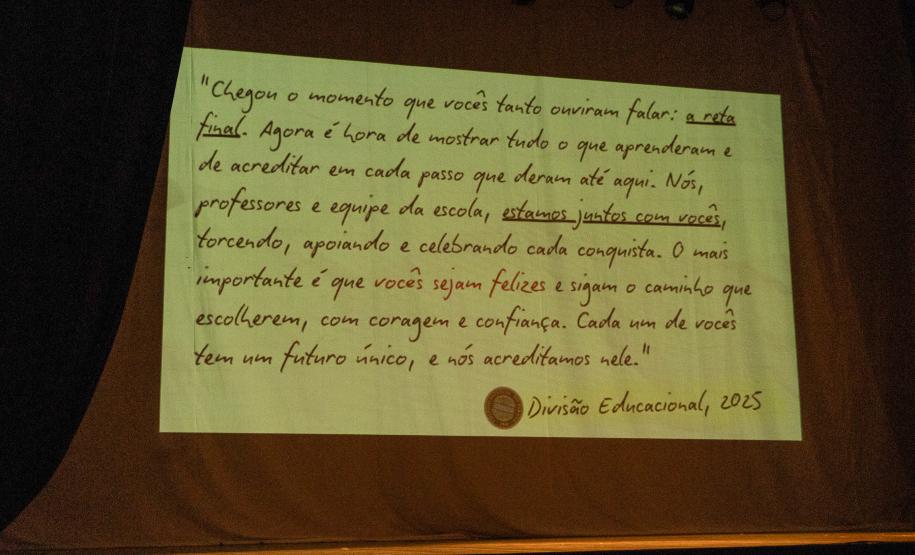 "Chegou o momento que vocês tanto ouviram falar: a reta
final. Agora é hora de mostrar tudo o que aprenderam e
de acreditar em cada passo que deram até aqui. Nós,
professores e equipe da escola, estamos juntos com vocês,
torcendo, apoiando e celebrando cada conquista. O mais
importante é que vocês sejam felizes e sigam o caminho que
escolherem, com coragem e confiança. Cada um de vocês
tem um futuro único, e nós acreditamos nele."
Divisão Educacional, 2025